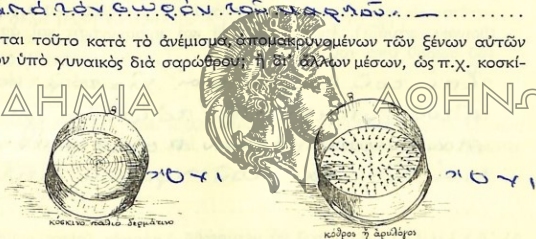 ἀπό τόν σωρόν τοῦ καρποῦ.
ται τοῦτο κατὰ τὸ ἀνέμισμα, ἀπομακρυνομένων τῶν ξένων αὐτῶν
ν ὑπὸ γυναικὸς διὰ σαρώθρου; ἢ δι' ἄλλων μέσων, ὡς π.χ. κοσκί-
ΔΗΜΙΑ ΑΘΗΝ
ὄχι ὄχι
κόσκινο παλιό δερμάτινο
κόθρος ἢ ἀρυλόγος